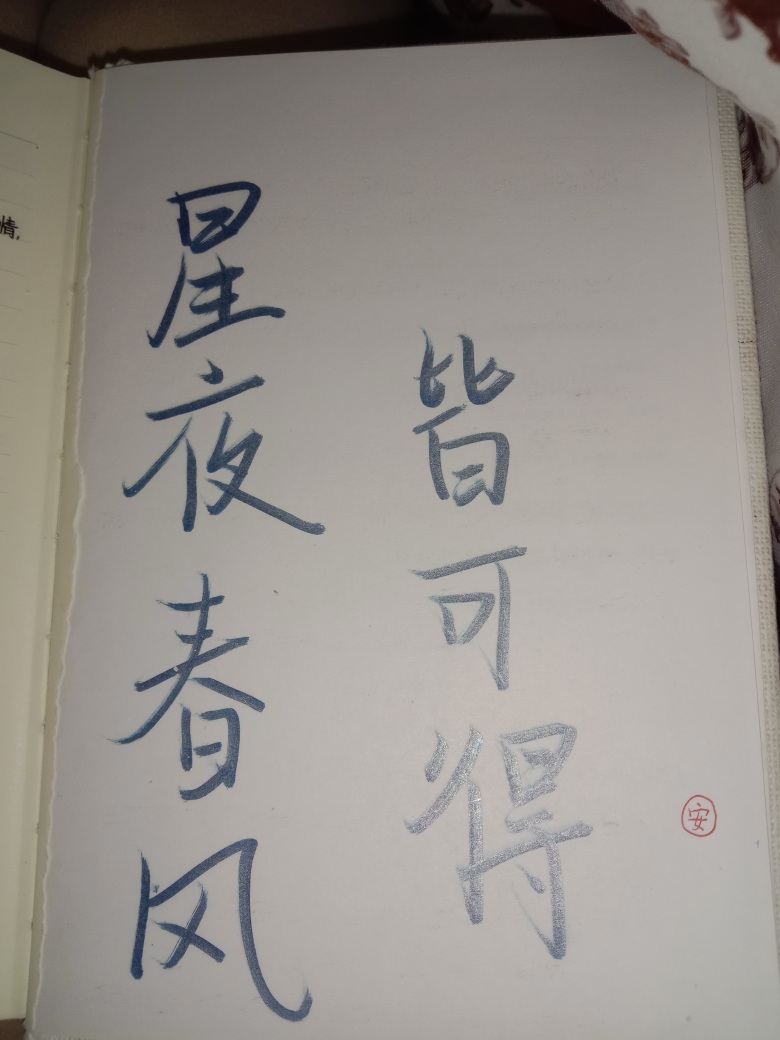 星夜春风
皆可得
安
情,